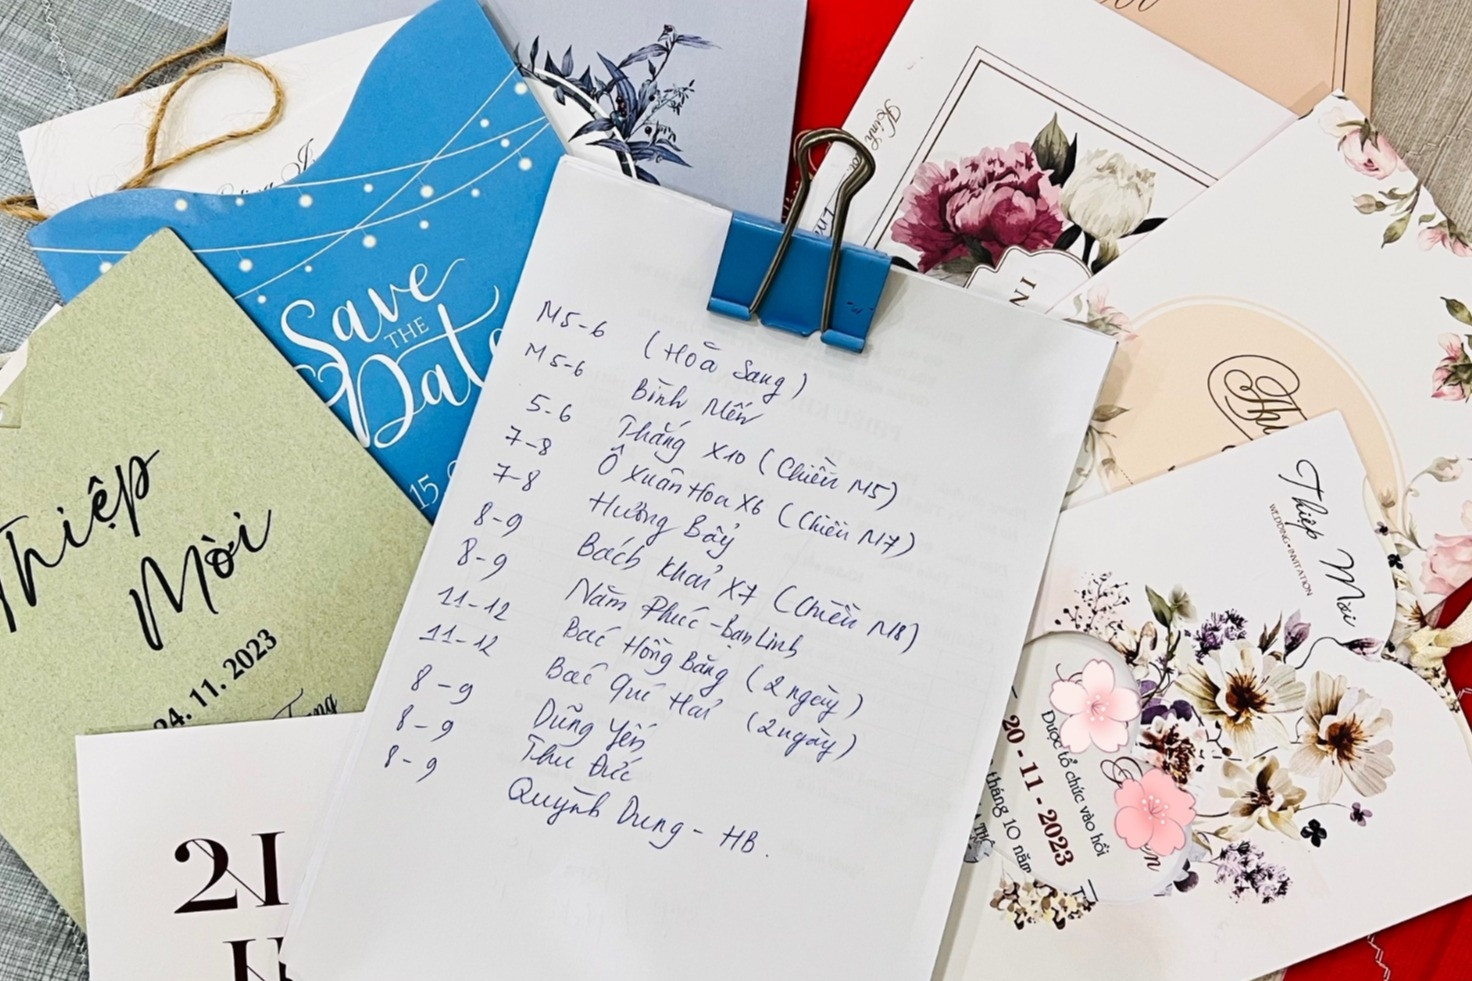 Save
THE
Date
15
Thiệp
Mời
24. 11. 2023
21
M5-6 (Hoà Sang)
M5-6 Bình Mến
5-6 Thắng X10 (Chiều M5)
7-8 Ô Xuân Hoa X6 (Chiều M7)
7-8 Hường Bẩy
8-9 Bách Khải X7 (Chiều M8)
8-9 Năm Phúc - Bạn Linh
11-12 Bác Hồng Băng (2 ngày)
11-12 Bác Quí Hải (2 ngày)
8-9 Dũng Yến
8-9 Thu Đức
8-9 Quỳnh Dung - HB.
Kính
IN
Thiệp Mời
WEDDING INVITATION
Được tổ chức vào hồi
20 - 11 - 2023
tháng 10 năm